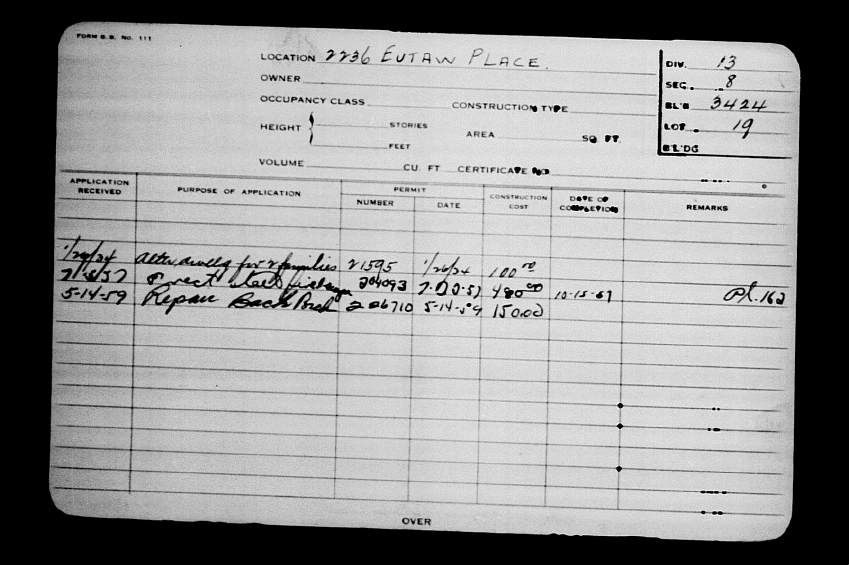 FORM B.B. No. 111
LOCATION 2236 EUTAW PLACE.
DIV. 13
OWNER
SEC. 8
OCCUPANCY CLASS CONSTRUCTION TYPE
BL'K 3424
HEIGHT { STORIES AREA SQ. FT.
LOT 19
FEET
B'LDG
VOLUME CU. FT. CERTIFICATE NO.
APPLICATION RECEIVED PURPOSE OF APPLICATION PERMIT NUMBER DATE CONSTRUCTION COST DATE OF COMPLETION REMARKS
1/26/24 alter dwellg for 2 families 21595 1/26/24 100 00
erect steel 204093 480 00 10-15-57 162
5-14-59 Repair Back Porch 206710 5-14-59 150.00
OVER